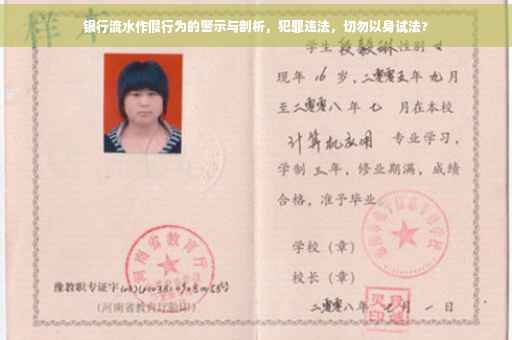 银行流水作假行为的警示与剖析，犯罪违法，切勿以身试法？
样本
学生段毅琳性别女
现年16岁，二零零五年九月
至二零零八年七月在本校
计算机应用 专业学习，
学制三年，修业期满，成绩
合格，准予毕业。
学校（章）
校长（章）
二零零八年七月一日
河南省教育厅
豫教职专证字
（河南省教育厅监印）